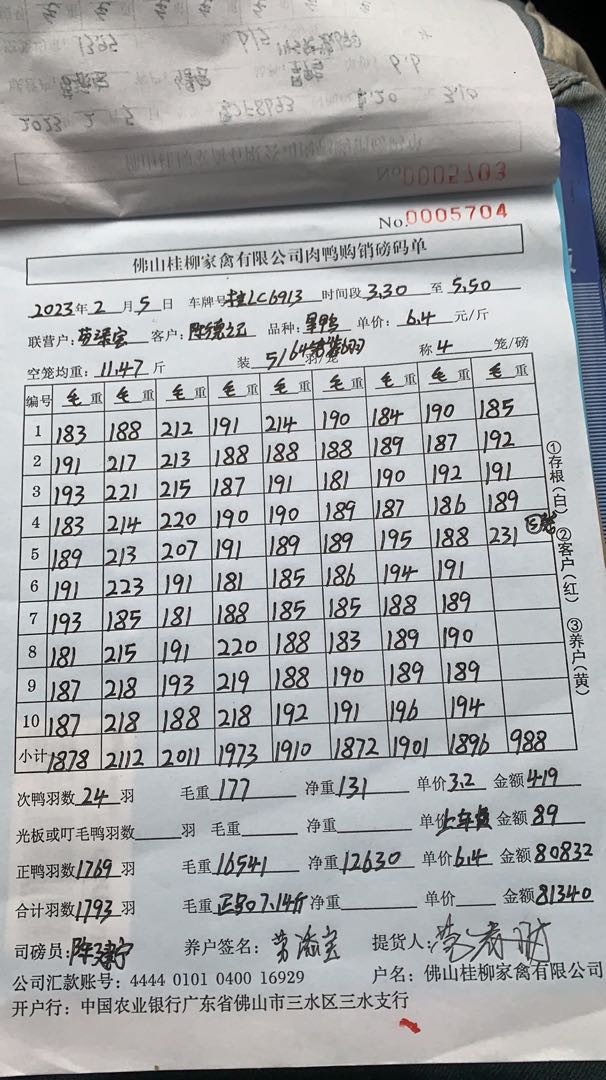 No.0005703
No.0005704
佛山桂柳家禽有限公司肉鸭购销磅码单
2023年 2 月 5 日 车牌号 LC6913 时间段 3.30 至 5.50
联营户: 客户: 陈德元 品种: 单价: 6.4 元/斤
空笼均重: 11.47 斤 装 羽/笼 称 4 笼/磅
编号 毛重 毛重 毛重 毛重 毛重 毛重 毛重 毛重 毛重
1 183 188 212 191 214 190 184 190 185
2 191 217 213 188 188 188 189 187 192
3 193 221 215 187 191 181 190 192 191
4 183 214 220 190 190 189 187 186 189
5 189 213 207 191 189 189 195 188 231
6 191 223 191 181 185 186 194 191
7 193 185 181 188 185 185 188 189
8 181 215 191 220 188 183 189 190
9 187 218 193 219 188 190 189 189
10 187 218 188 218 192 191 196 194
小计 1878 2112 2011 1973 1910 1872 1901 1896 988
①存根(白) ②客户(红) ③养户(黄)
次鸭羽数 24 羽 毛重 177 净重 131 单价 3.2 金额 419
光板或叮毛鸭羽数 羽 毛重 净重 单价 上车费 金额 89
正鸭羽数 1769 羽 毛重 16541 净重 12630 单价 6.4 金额 80832
合计羽数 1793 羽 毛重 正勾7.14斤 净重 单价 金额 81340
司磅员: 养户签名: 提货人:
公司汇款账号: 4444 0101 0400 16929 户名: 佛山桂柳家禽有限公司
开户行: 中国农业银行广东省佛山市三水区三水支行